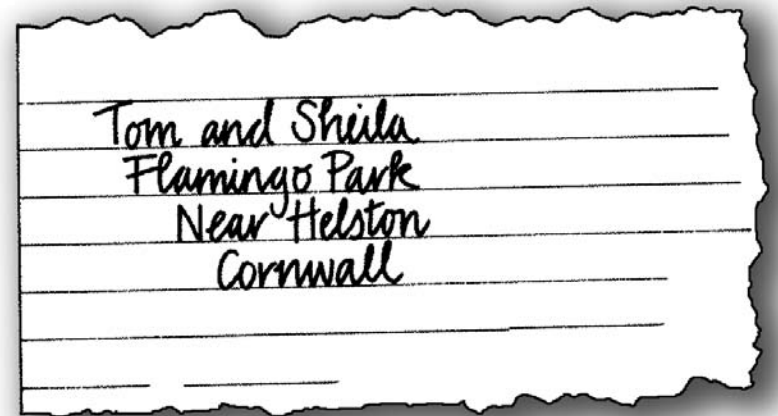 Tom and Sheila
Flamingo Park
Near Helston
Cornwall